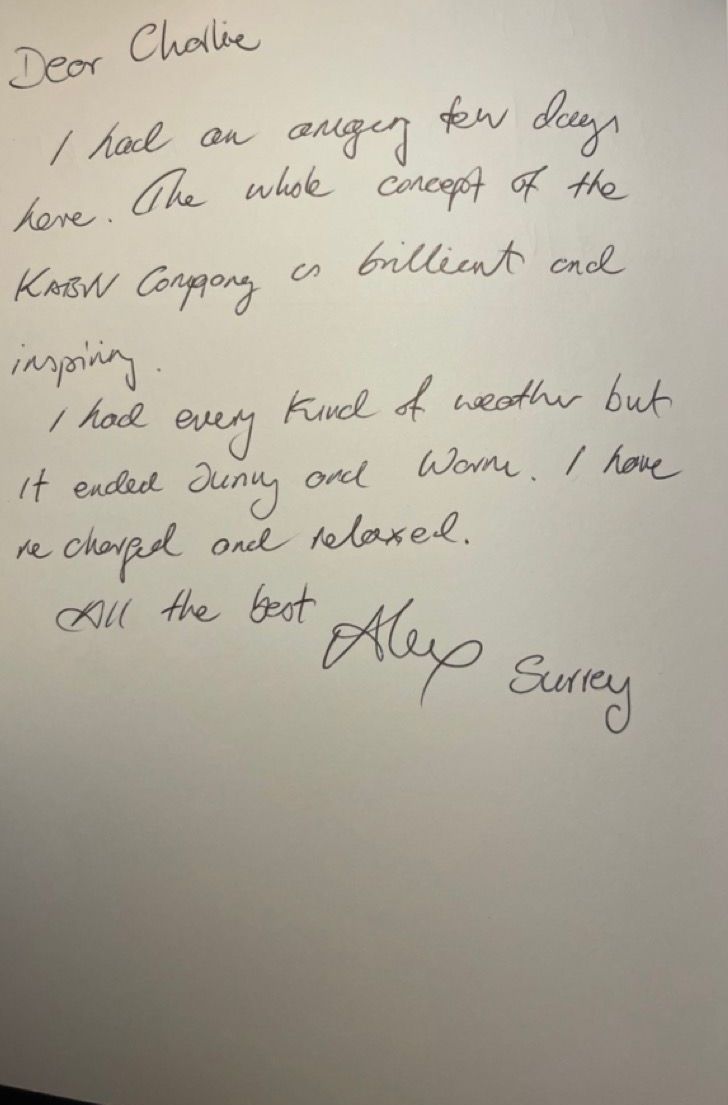 Dear Charlie
I had an amazing few days
here. The whole concept of the
KABN Company is brilliant and
inspiring.
I had every kind of weather but
it ended sunny and warm. I have
re charged and relaxed.
All the best Alex Surrey